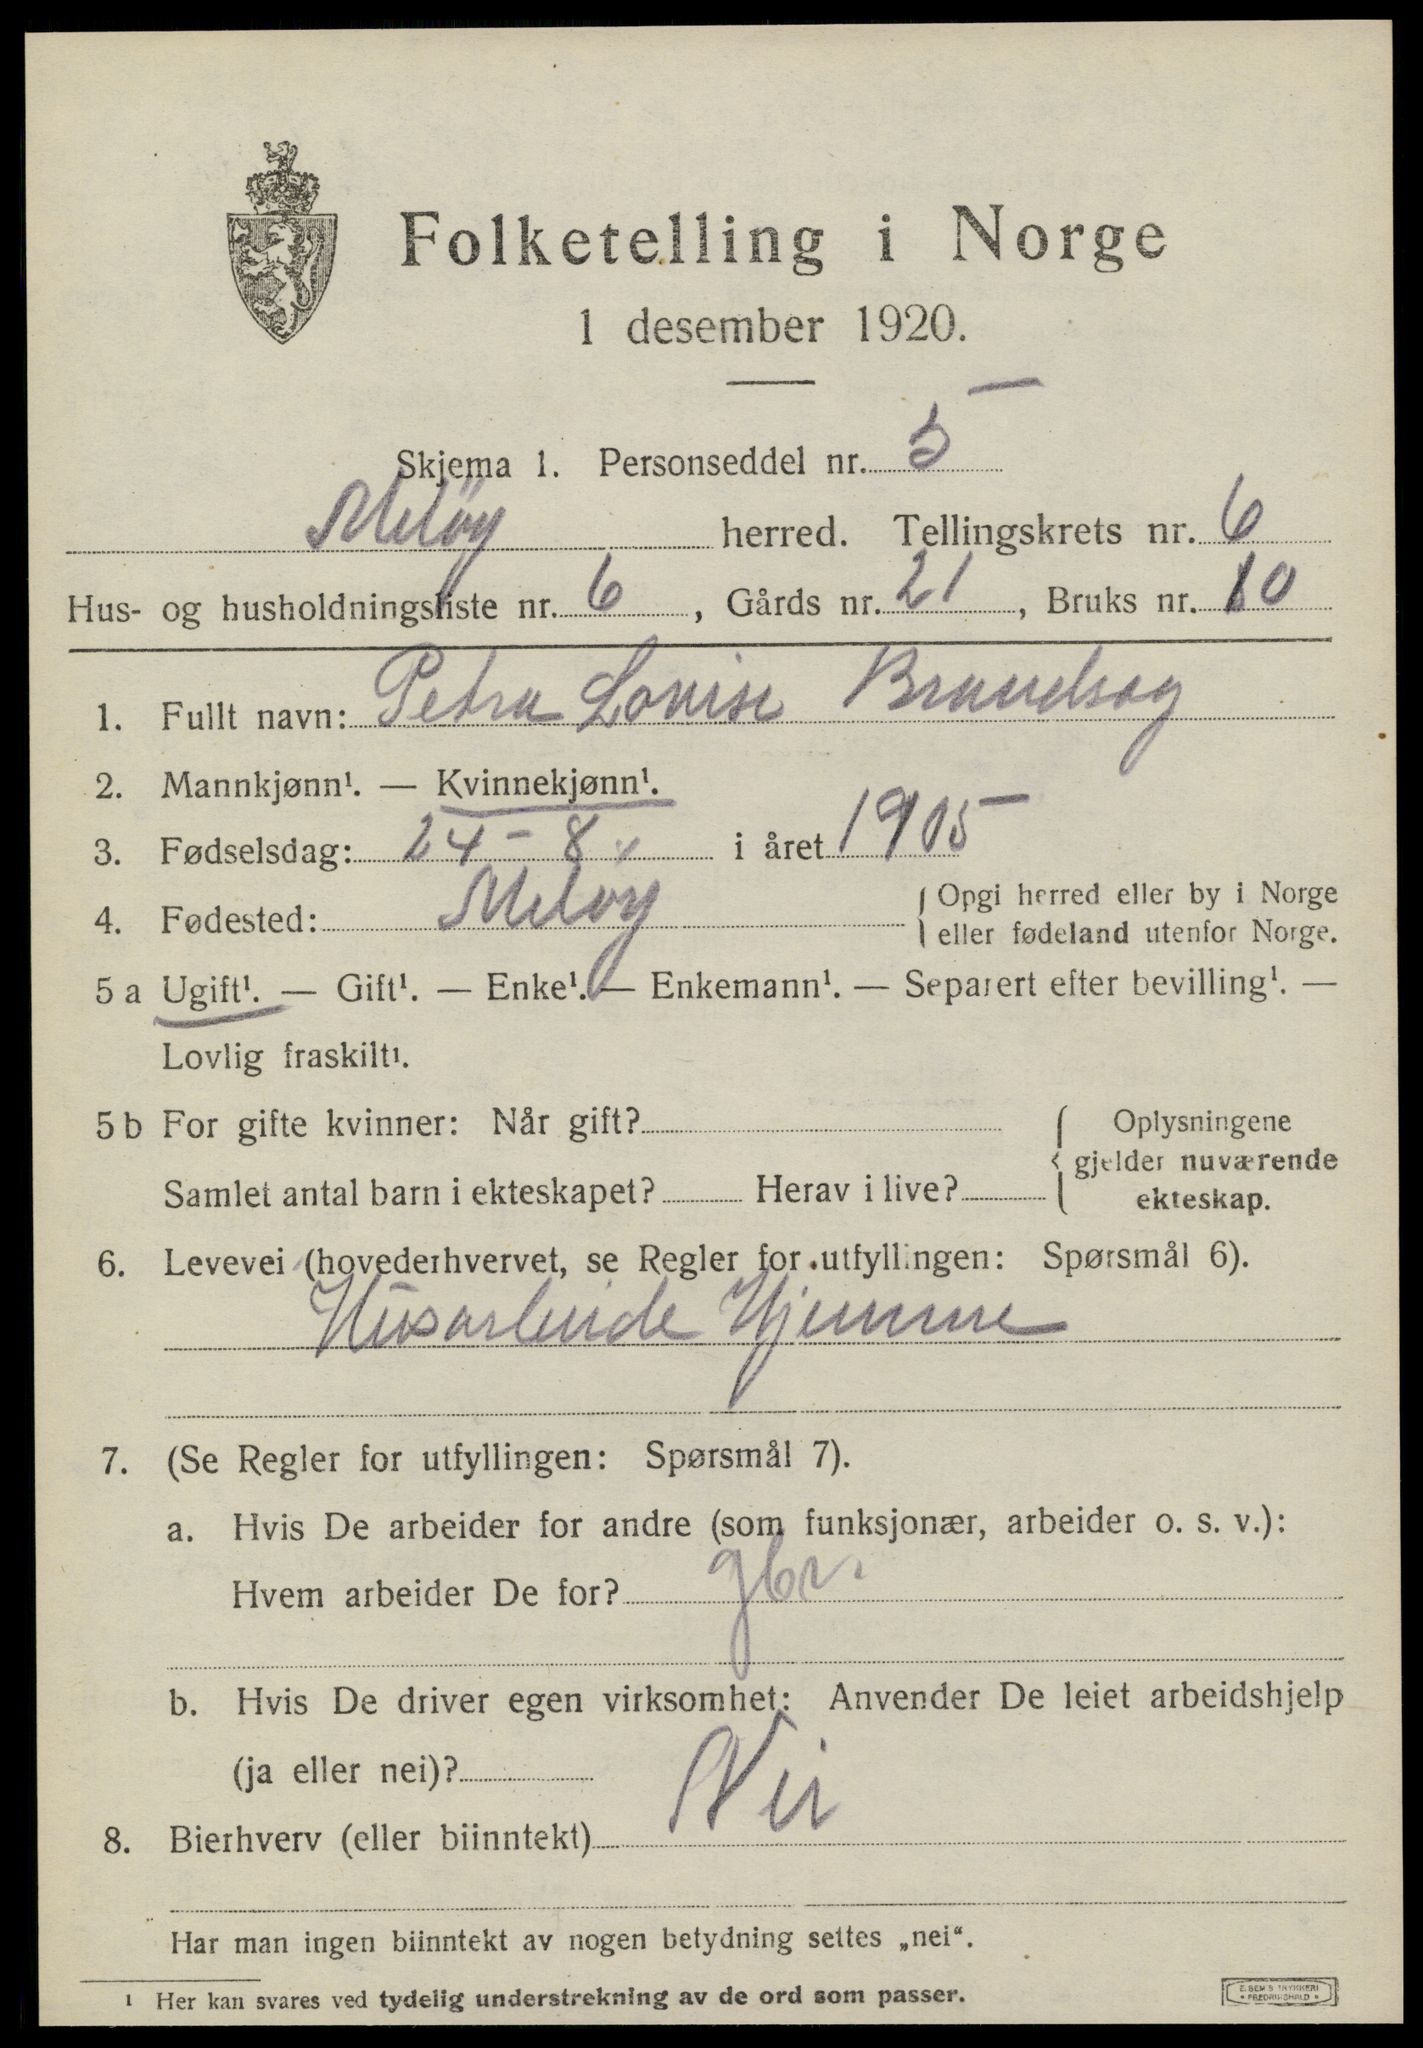 Folketelling i Norge
1 desember 1920.
Skjema 1. Personseddel nr. 5
Meløy herred. Tellingskrets nr. 6
Hus- og husholdningsliste nr. 6, Gårds nr. 21, Bruks nr. 10
1. Fullt navn: Petra Lovise
2. Mannkjønn¹. — Kvinnekjønn¹.
3. Fødselsdag: 24 - 8 i året 1905
4. Fødested: Meløy { Opgi herred eller by i Norge
eller fødeland utenfor Norge.
5 a Ugift¹. — Gift¹. — Enke¹. — Enkemann¹. — Separert efter bevilling¹. —
Lovlig fraskilt¹.
5 b For gifte kvinner: Når gift? { Oplysningene
gjelder nuværende
Samlet antal barn i ekteskapet? Herav i live? ekteskap.
6. Levevei (hovederhvervet, se Regler for utfyllingen: Spørsmål 6).
Husarbeide Hjemme
7. (Se Regler for utfyllingen: Spørsmål 7).
a. Hvis De arbeider for andre (som funksjonær, arbeider o. s. v.):
Hvem arbeider De for? gbr.
b. Hvis De driver egen virksomhet: Anvender De leiet arbeidshjelp
(ja eller nei)?
8. Bierhverv (eller biinntekt) Nei
Har man ingen biinntekt av nogen betydning settes „nei“.
¹ Her kan svares ved tydelig understrekning av de ord som passer.
E. SEM'S TRYKKERI
• FREDRIKSHALD •